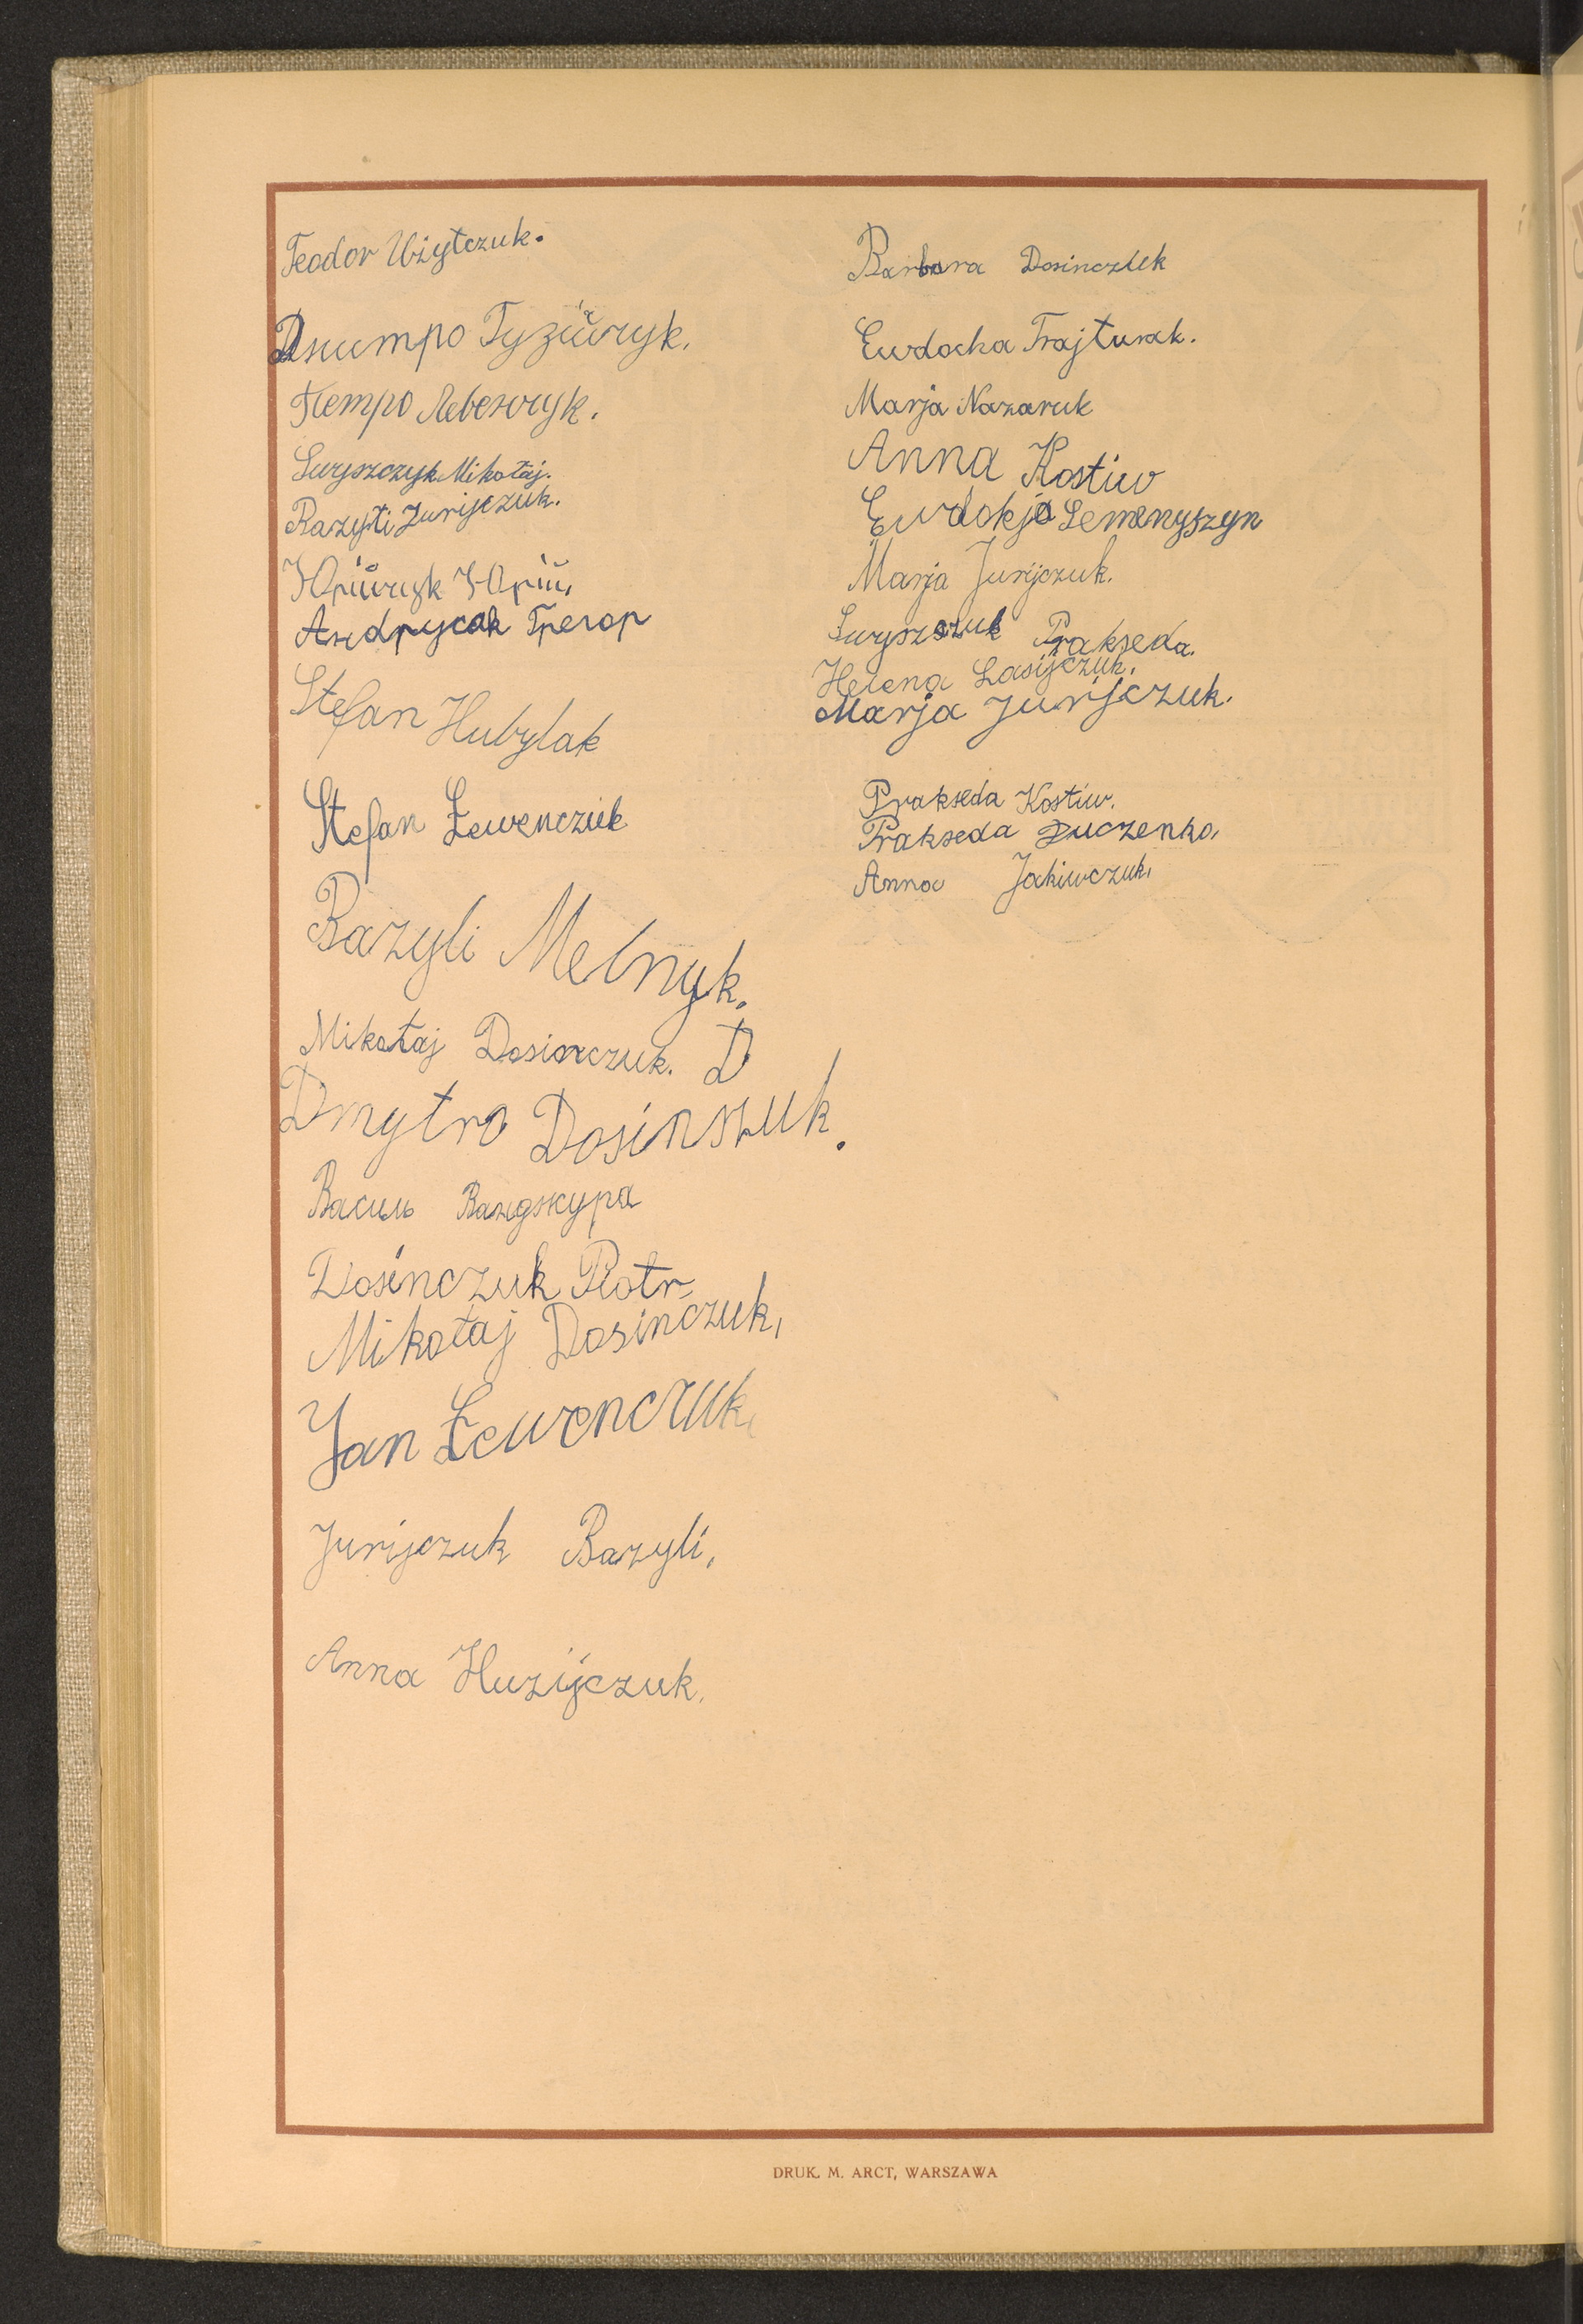 Teodor Użytczuk.
Дмитро Гузійчук.
Петро Левенчук.
Łuryszczyk Mikołaj.
Bazyli Jurijczuk.
Юрійчук Юрій,
Андрусак Грегор
Stefan Hubylak
Stefan Łewenczuk
Bazyli Melnyk.
Mikołaj Dosinczuk. D
Dmytro Dosinszuk.
Василь Ванджура
Dosinczuk Piotr
Mikołaj Dosinczuk,
Jan Łewenczuk,
Jurijczuk Bazyli,
Anna Huzijczuk.
Barbara Dosinczuk
Ewdocka Trajturak.
Marja Nazaruk
Anna Kostiw
Ewdokja Semenyszyn
Marja Jurijczuk.
Łuryszczuk Prakseda.
Helena Łasijczuk,
Marja Jurijczuk.
Prakseda Kostiw.
Prakseda Łuczenko,
Anna Jakiwczuk,
DRUK. M. ARCT, WARSZAWA